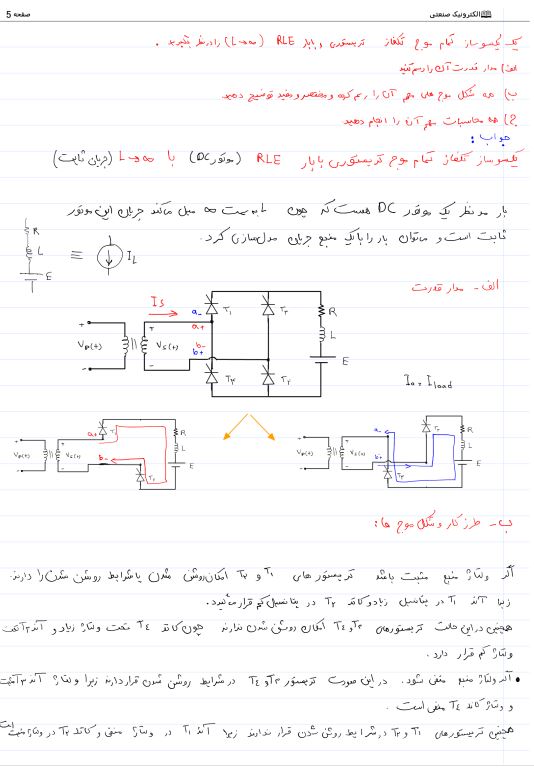 الکترونیک صنعتی
صفحه 5
یک یکسوساز تمام موج تکفاز تریستوری با بار RLE (L→∞) را در نظر بگیرید.
الف) مدار قدرت آن را رسم کنید
ب) همه شکل موج های مهم آن را رسم کرده و مختصر و مفید توضیح دهید
ج) همه محاسبات مهم آن را انجام دهید
جواب:
یکسوساز تکفاز تمام موج تریستوری با بار RLE (موتور DC) با L→∞ (جریان ثابت)
بار مد نظر یک موتور DC هست که چون L به سمت ∞ میل میکند جریان این موتور
ثابت است و میتوان بار را با یک منبع جریان مدل سازی کرد.
R
L
E
≡
I_L
الف - مدار قدرت
Is
a-
a+
b-
b+
T1
T3
R
L
E
Vp(t)
Vs(t)
Ia = Iload
a+
b-
R
L
E
Vp(t)
Vs(t)
a-
b+
R
L
E
Vp(t)
Vs(t)
ب - طرز کار و شکل موج ها:
اگر ولتاژ منبع مثبت باشد تریستور های T1 و T2 امکان روشن شدن یا شرایط روشن شدن را دارند.
زیرا آند T1 در پتانسیل زیاد و کاتد T2 در پتانسیل کم قرار میگیرد.
همچنین در این حالت تریستورهای T3 و T4 امکان روشن شدن ندارند چون کاتد T4 تحت ولتاژ زیاد و آند T3 تحت
ولتاژ کم قرار دارد.
• اگر ولتاژ منبع منفی شود. در این صورت تریستور T3 و T4 در شرایط روشن شدن قرار دارند زیرا ولتاژ آند T3 مثبت
و ولتاژ کاتد T4 منفی است.
همچنین تریستورهای T1 و T2 در شرایط روشن شدن قرار ندارند زیرا آند T1 در ولتاژ منفی و کاتد T2 در ولتاژ مثبت است